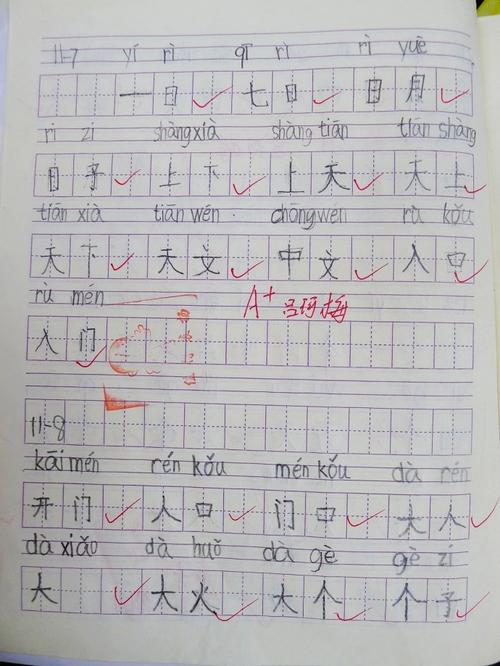 11-7 yí rì qī rì rì yuè
一日 七日 日月
rì zi shàngxià shàng tiān tiān shàng
日子 上下 上天 天上
tiān xià tiān wén chōngwén rù kǒu
天下 天文 中文 入口
rù mén A+ 吕珂梅
入门
11-8
kāi mén rén kǒu mén kǒu dà rén
开门 人口 门口 大人
dà xiǎo dà huǒ dà gè gè zi
大 大火 大个 个子